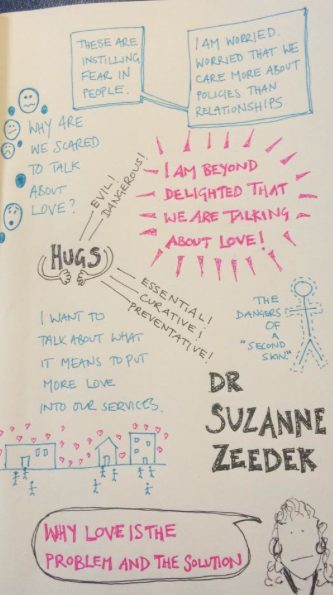 THESE ARE
INSTILLING
FEAR IN
PEOPLE.
I AM WORRIED.
WORRIED THAT WE
CARE MORE ABOUT
POLICIES THAN
RELATIONSHIPS
WHY ARE
WE SCARED
TO TALK
ABOUT
LOVE?
EVIL!
DANGEROUS!
I AM BEYOND
DELIGHTED THAT
WE ARE TALKING
ABOUT LOVE!
HUGS
ESSENTIAL!
CURATIVE!
PREVENTATIVE!
THE
DANGERS
OF A
"SECOND
SKIN"
I WANT TO
TALK ABOUT WHAT
IT MEANS TO PUT
MORE LOVE
INTO OUR SERVICES.
DR
SUZANNE
ZEEDEK
WHY LOVE IS THE
PROBLEM AND THE SOLUTION